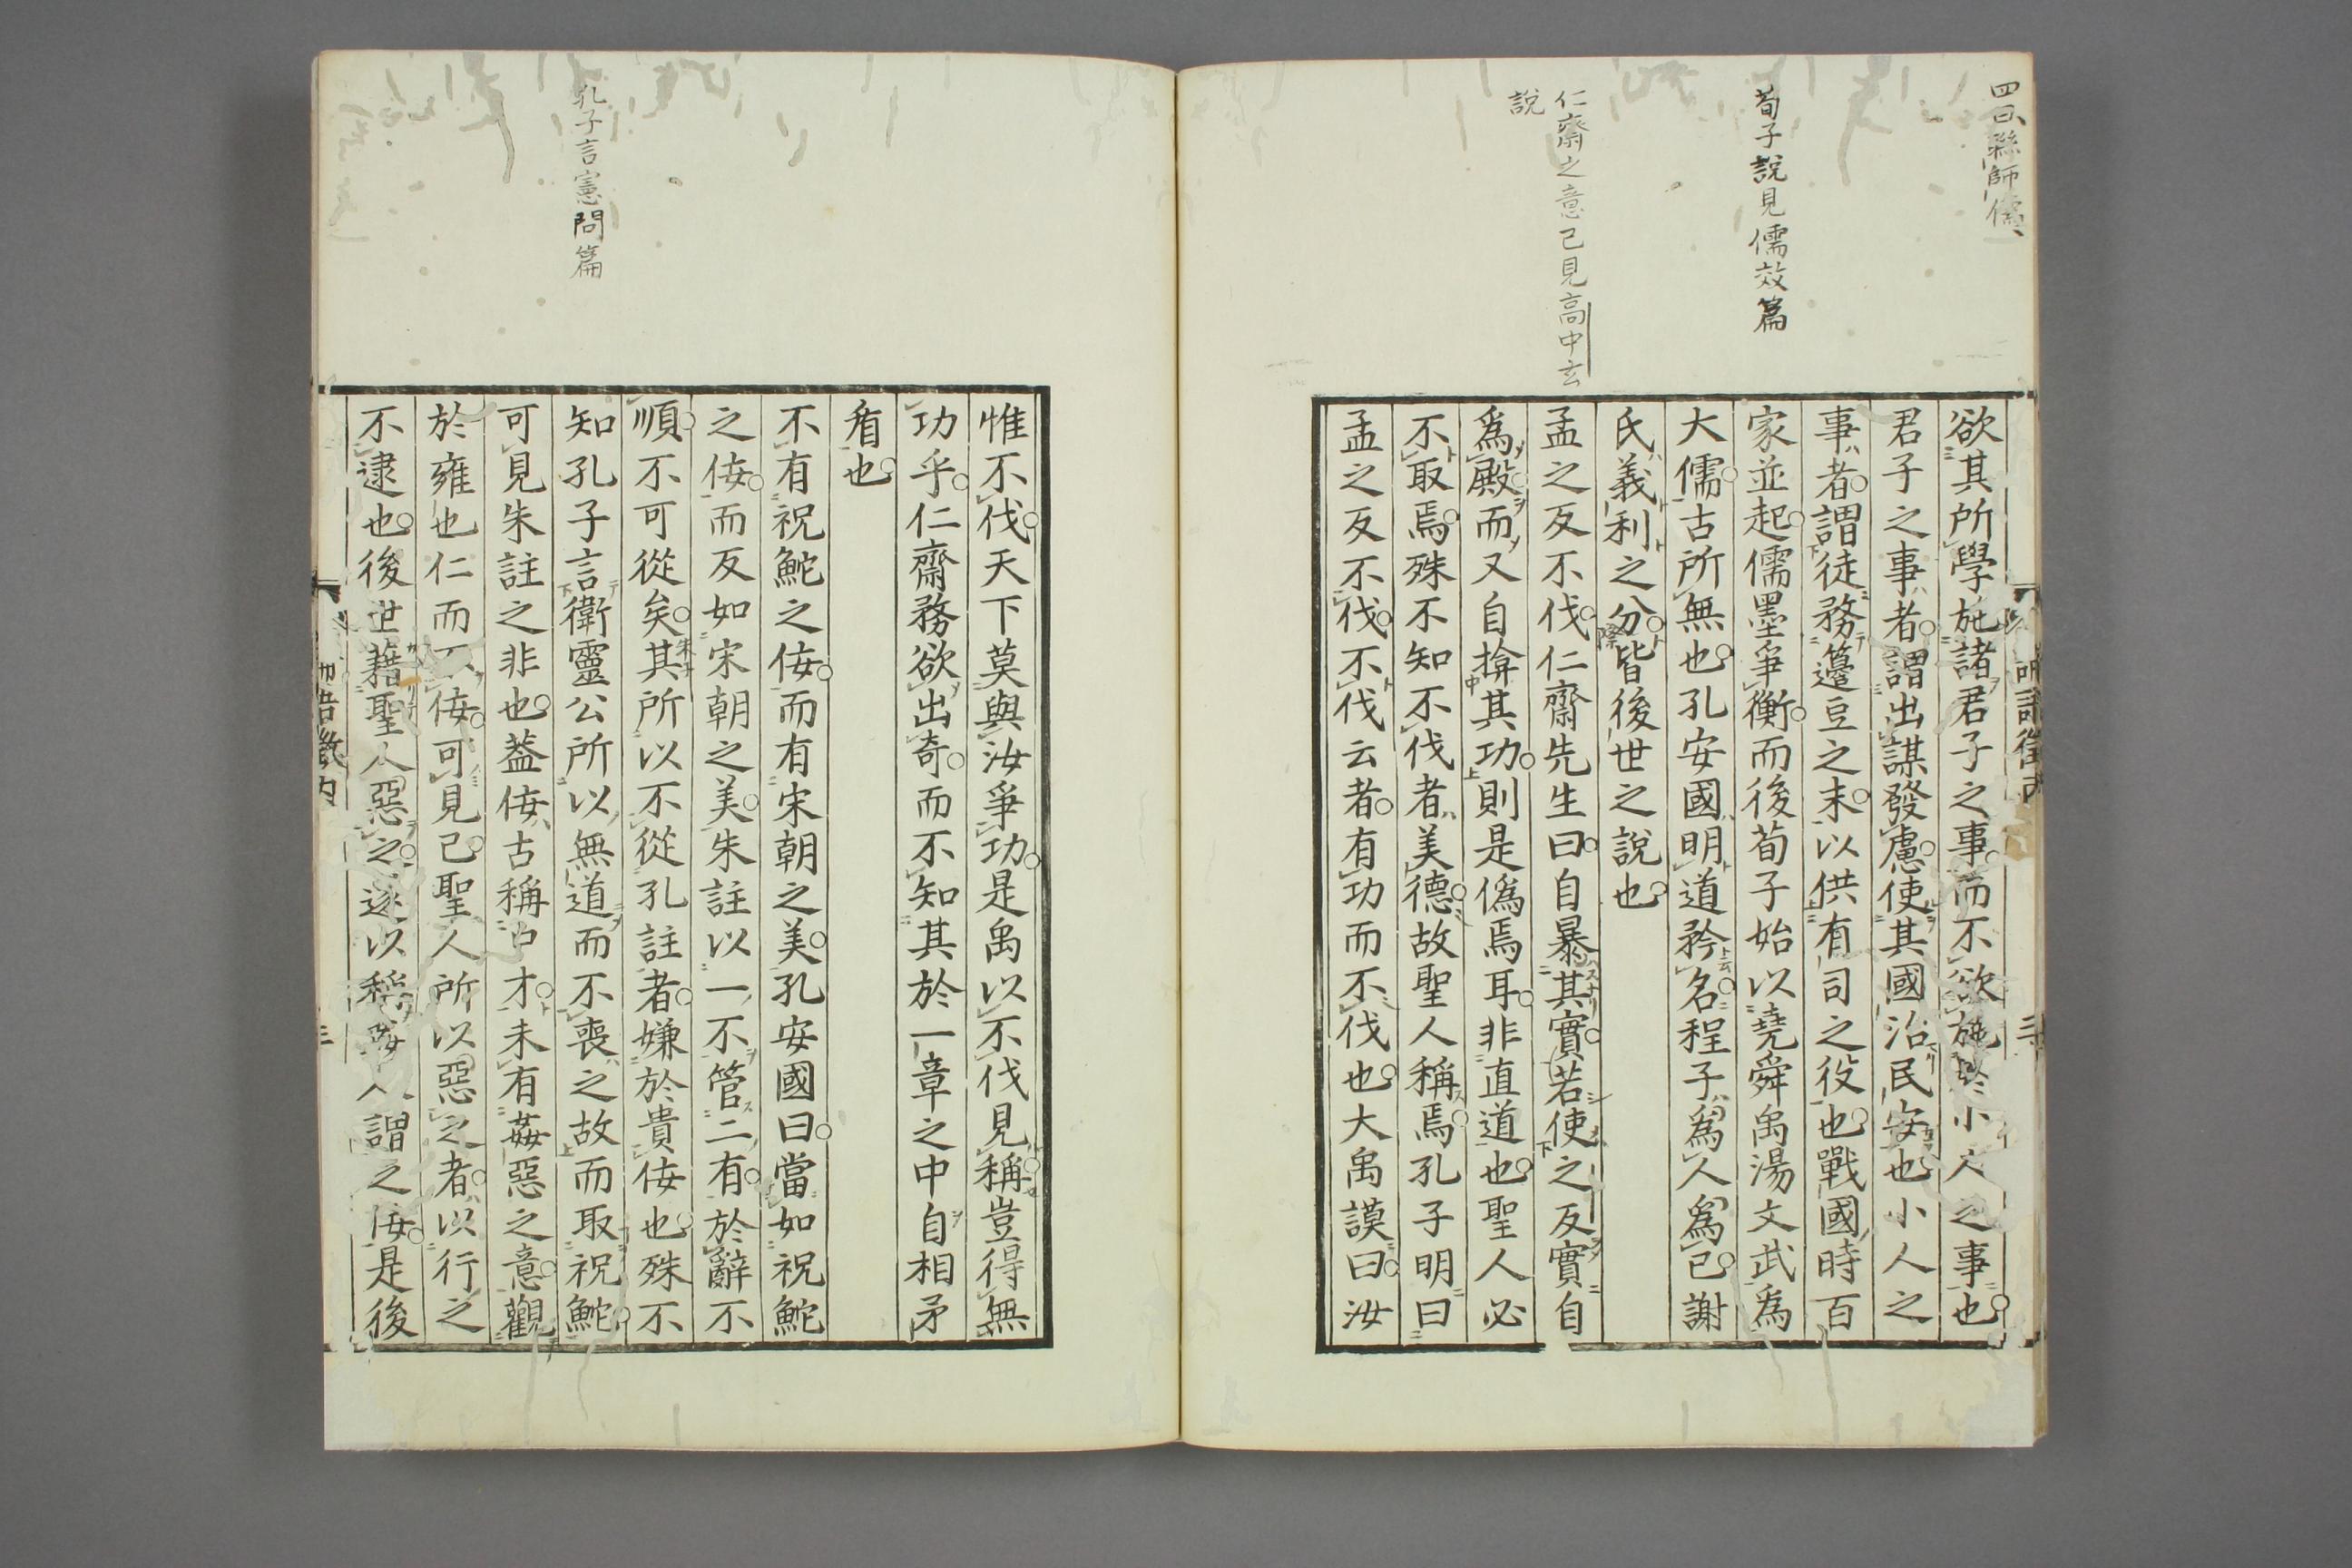 四曰聯師儒
荀子說見儒效篇
仁齋之意已見高中玄
說
欲其所學施諸君子之事而不欲施於小人之事也
君子之事者謂出謀發慮使其國治民安也小人之
事者謂徒務籩豆之末以供有司之役也戰國時百
家並起儒墨爭衡而後荀子始以堯舜禹湯文武爲
大儒古所無也孔安國明道矜名程子爲人爲己謝
氏義利之分皆後世之說也
孟之反不伐仁齋先生曰自暴其實若使之反實自
爲殿而又自揜其功則是僞焉耳非直道也聖人必
不取焉殊不知不伐者美德故聖人稱焉孔子明曰
孟之反不伐不伐云者有功而不伐也大禹謨曰汝
孔子言憲問篇
惟不伐天下莫與汝爭功是禹以不伐見稱豈得無
功乎仁齋務欲出奇而不知其於一章之中自相矛
盾也
不有祝鮀之侫而有宋朝之美孔安國曰當如祝鮀
之侫而反如宋朝之美朱註以一不管二有於辭不
順不可從矣其所以不從孔註者嫌於貴侫也殊不
知孔子言衛靈公所以無道而不喪之故而取祝鮀
可見朱註之非也葢侫古稱口才未有姦惡之意觀
於雍也仁而不侫可見已聖人所以惡之者以行之
不逮也後世藉聖人惡之遂以稱姦人謂之侫是後